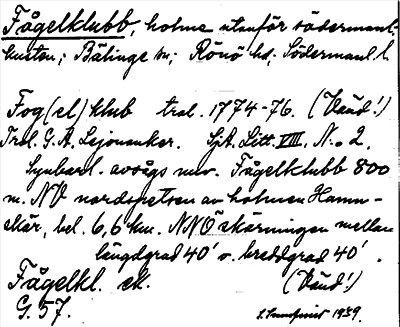 Fågelklubb, holme utanför södermanl.-
kusten; Bälinge sn; Rönö hd; Södermanl. l.
Fog(el)klub tral. 1774-76. (Vänd!)
Trol. G. A. Lejonanker. Sjk. Litt. VIII. N:o 2.
Synbarl. avsågs nuv. Fågelklubb 800
m. NV nordspetsen av holmen Hamn-
skär, bel. 6,6 km. NNÖ skärningen mellan
längdgrad 40' o. breddgrad 40'.
Fågelkl. ek. (Vänd!)
G. 57. 1939.